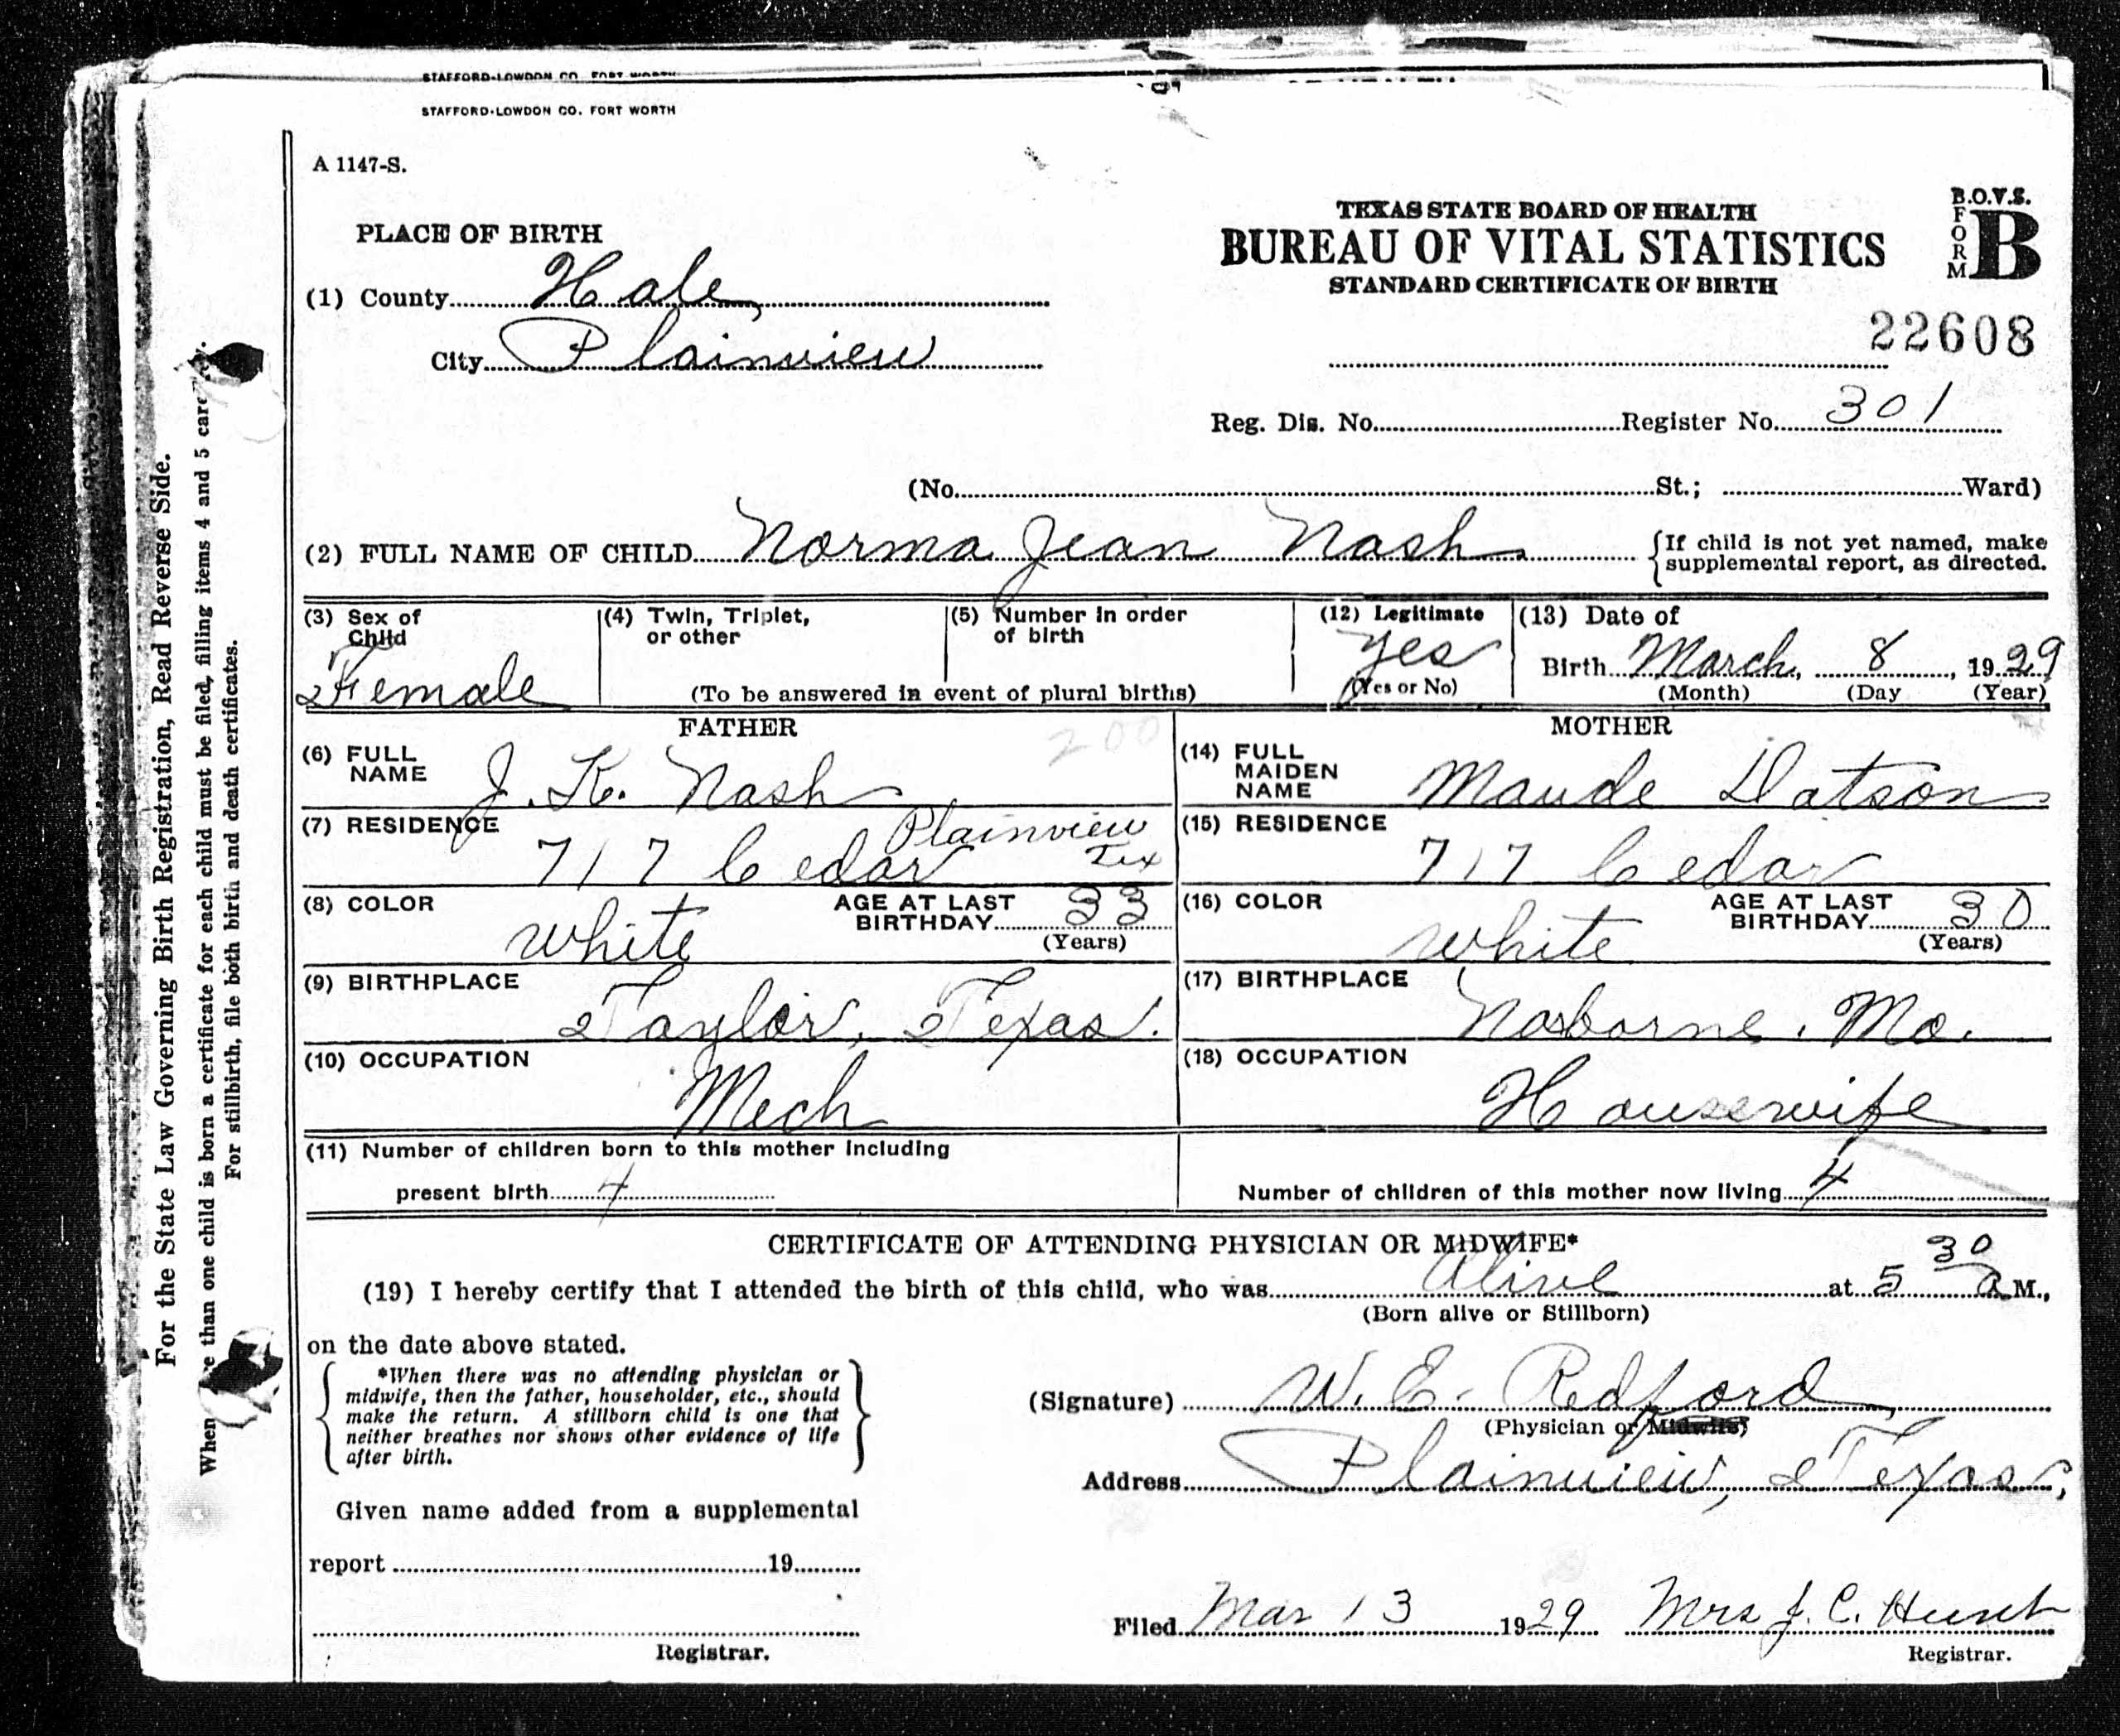 STAFFORD-LOWDON CO. FORT WORTH
STAFFORD-LOWDON CO. FORT WORTH
A 1147-S.
B.O.V.S.
FORM B
TEXAS STATE BOARD OF HEALTH
BUREAU OF VITAL STATISTICS
STANDARD CERTIFICATE OF BIRTH
22608
PLACE OF BIRTH
(1) County Hale
City Plainview
Reg. Dis. No. Register No. 301
(No. St.; Ward)
(2) FULL NAME OF CHILD Norma Jean Nash
{If child is not yet named, make
supplemental report, as directed.
(3) Sex of Child Female
(4) Twin, Triplet, or other
(5) Number in order of birth
(To be answered in event of plural births)
(12) Legitimate yes (Yes or No)
(13) Date of
Birth March, 8, 1929
(Month) (Day) (Year)
FATHER
200
(6) FULL NAME J. K. Nash
(7) RESIDENCE 717 Cedar Plainview Tex
(8) COLOR white AGE AT LAST BIRTHDAY 33 (Years)
(9) BIRTHPLACE Taylor, Texas.
(10) OCCUPATION Mech
MOTHER
(14) FULL MAIDEN NAME Maude Datson
(15) RESIDENCE 717 Cedar
(16) COLOR white AGE AT LAST BIRTHDAY 30 (Years)
(17) BIRTHPLACE Norborne, Mo.
(18) OCCUPATION Housewife
(11) Number of children born to this mother including
present birth 4
Number of children of this mother now living 4
CERTIFICATE OF ATTENDING PHYSICIAN OR MIDWIFE*
(19) I hereby certify that I attended the birth of this child, who was Alive at 5 30 a M.,
(Born alive or Stillborn)
on the date above stated.
*When there was no attending physician or
midwife, then the father, householder, etc., should
make the return. A stillborn child is one that
neither breathes nor shows other evidence of life
after birth.
(Signature) W. E. Redford
(Physician or Midwife)
Address Plainview, Texas,
Given name added from a supplemental
report 19
Registrar.
Filed Mar 13 1929 Mrs J. C. Hunt
Registrar.
For the State Law Governing Birth Registration, Read Reverse Side.
When than one child is born a certificate for each child must be filed, filling items 4 and 5
For stillbirth, file both birth and death certificates.